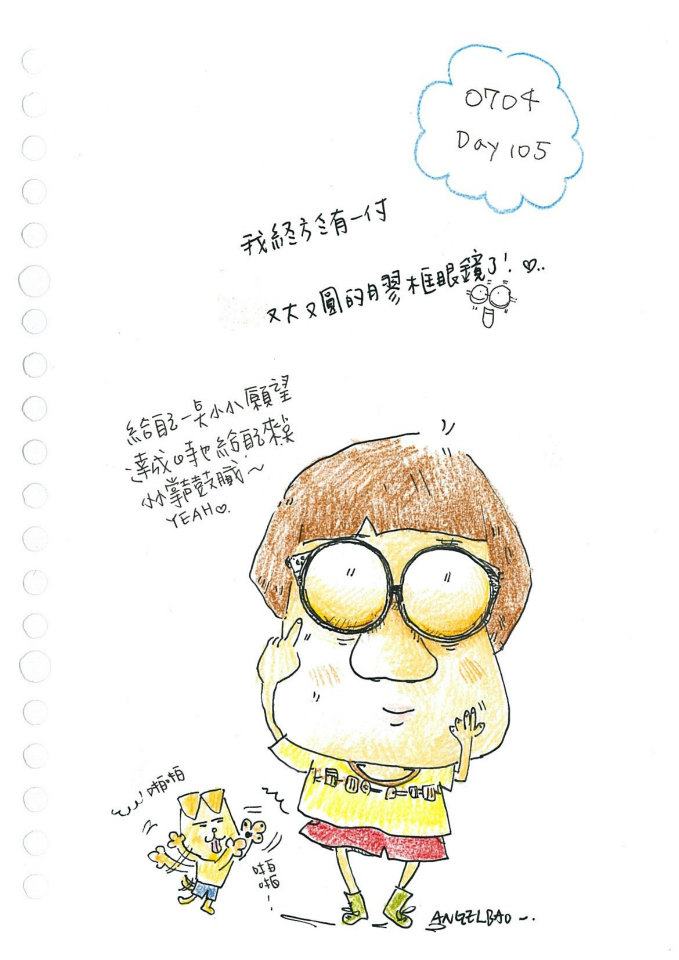 0704
Day 105
我終於有一付
又大又圓的膠框眼鏡了!♡..
給自己一点小小願望
達成時也給自己來奖
小小掌聲鼓職~
YEAH♡.
啪啪
啪啪!
ANGELBAO~.